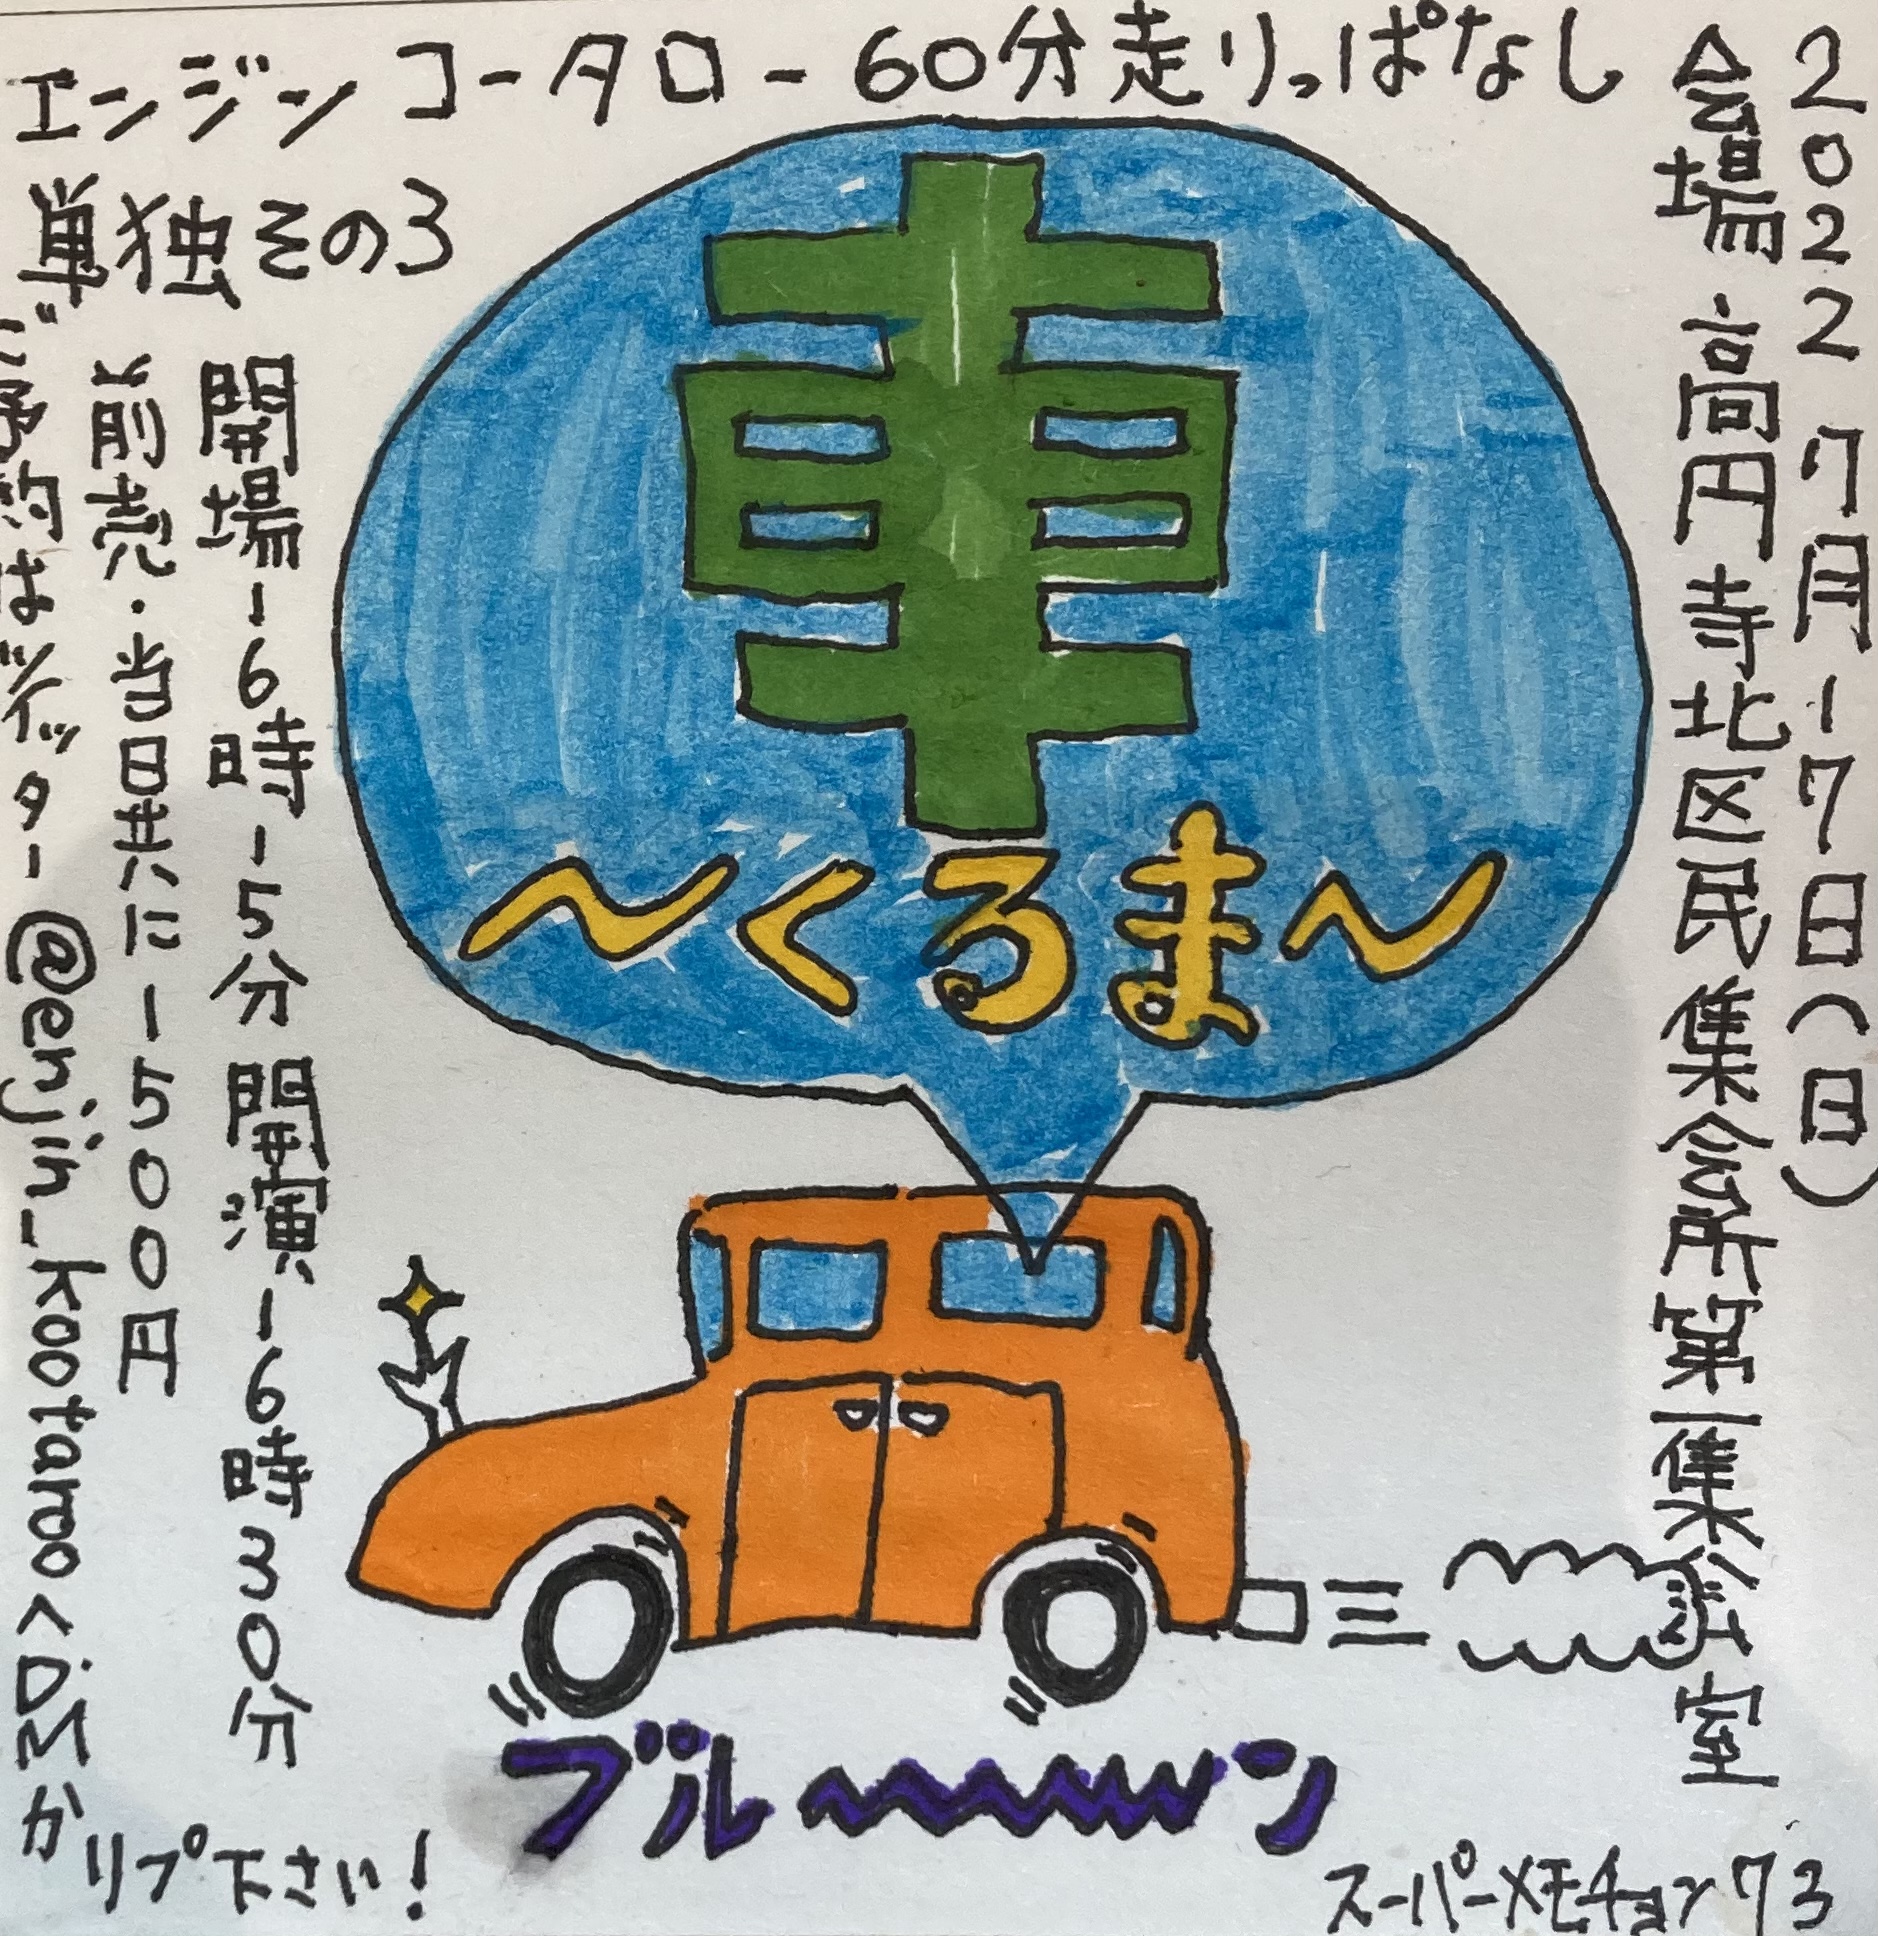 エンジンコータロー60分走りっぱなし
単独その3
2022 7月17日(日)
会場 高円寺北区民集会所第一集会室
車
〜くろま〜
開場16時15分 開演16時30分
前売・当日共に1500円
ご予約はツイッター@enjin_kootarooへDMか
リプ下さい!
ブル〜〜〜ン
スーパーメモチョン73